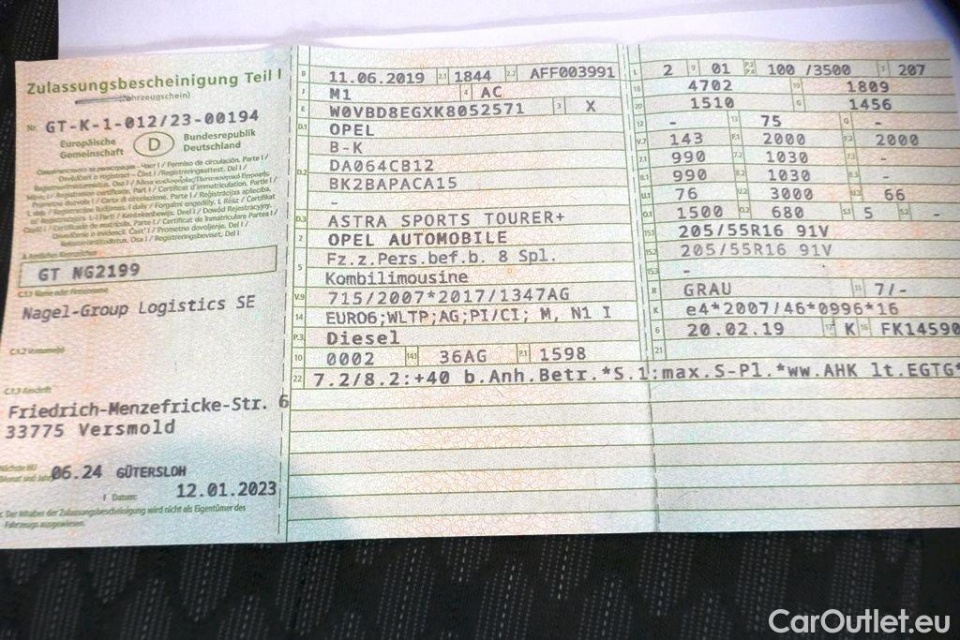 Zulassungsbescheinigung Teil I
(Fahrzeugschein)
Nr. GT-K-1-012/23-00194
Europäische Gemeinschaft
D
Bundesrepublik Deutschland
GT NG2199
C.1.1 Name oder Firmenname
Nagel-Group Logistics SE
C.1.2 Vorname(n)
C.1.3 Anschrift
Friedrich-Menzefricke-Str. 6
33775 Versmold
06.24 GÜTERSLOH
I Datum: 12.01.2023
Der Inhaber der Zulassungsbescheinigung wird nicht als Eigentümer des
Fahrzeugs ausgewiesen.
B 11.06.2019 2.1 1844 2.2 AFF003991
J M1 4 AC
E W0VBD8EGXK8052571 3 X
D.1 OPEL
B-K
D.2 DA064CB12
BK2BAPACA15
-
D.3 ASTRA SPORTS TOURER+
2 OPEL AUTOMOBILE
5 Fz.z.Pers.bef.b. 8 Spl.
Kombilimousine
V.9 715/2007*2017/1347AG
14 EURO6;WLTP;AG;PI/CI; M, N1 I
P.3 Diesel
10 0002 14.1 36AG P.1 1598
22 7.2/8.2:+40 b.Anh.Betr.*S.1:max.S-Pl.*ww.AHK lt.EGTG*
L 2 9 01 100 /3500 T 207
18 4702 19 1809
20 1510 G 1456
12 - 13 75 Q -
V.7 143 F.1 2000 F.2 2000
7.1 990 7.2 1030 7.3 -
8.1 990 8.2 1030 8.3 -
U.1 76 U.2 3000 U.3 66
O.1 1500 O.2 680 S.1 5 S.2 -
15.1 205/55R16 91V
15.2 205/55R16 91V
15.3 -
R GRAU 11 7/-
K e4*2007/46*0996*16
6 20.02.19 17 K 16 FK14590
21
CarOutlet.eu